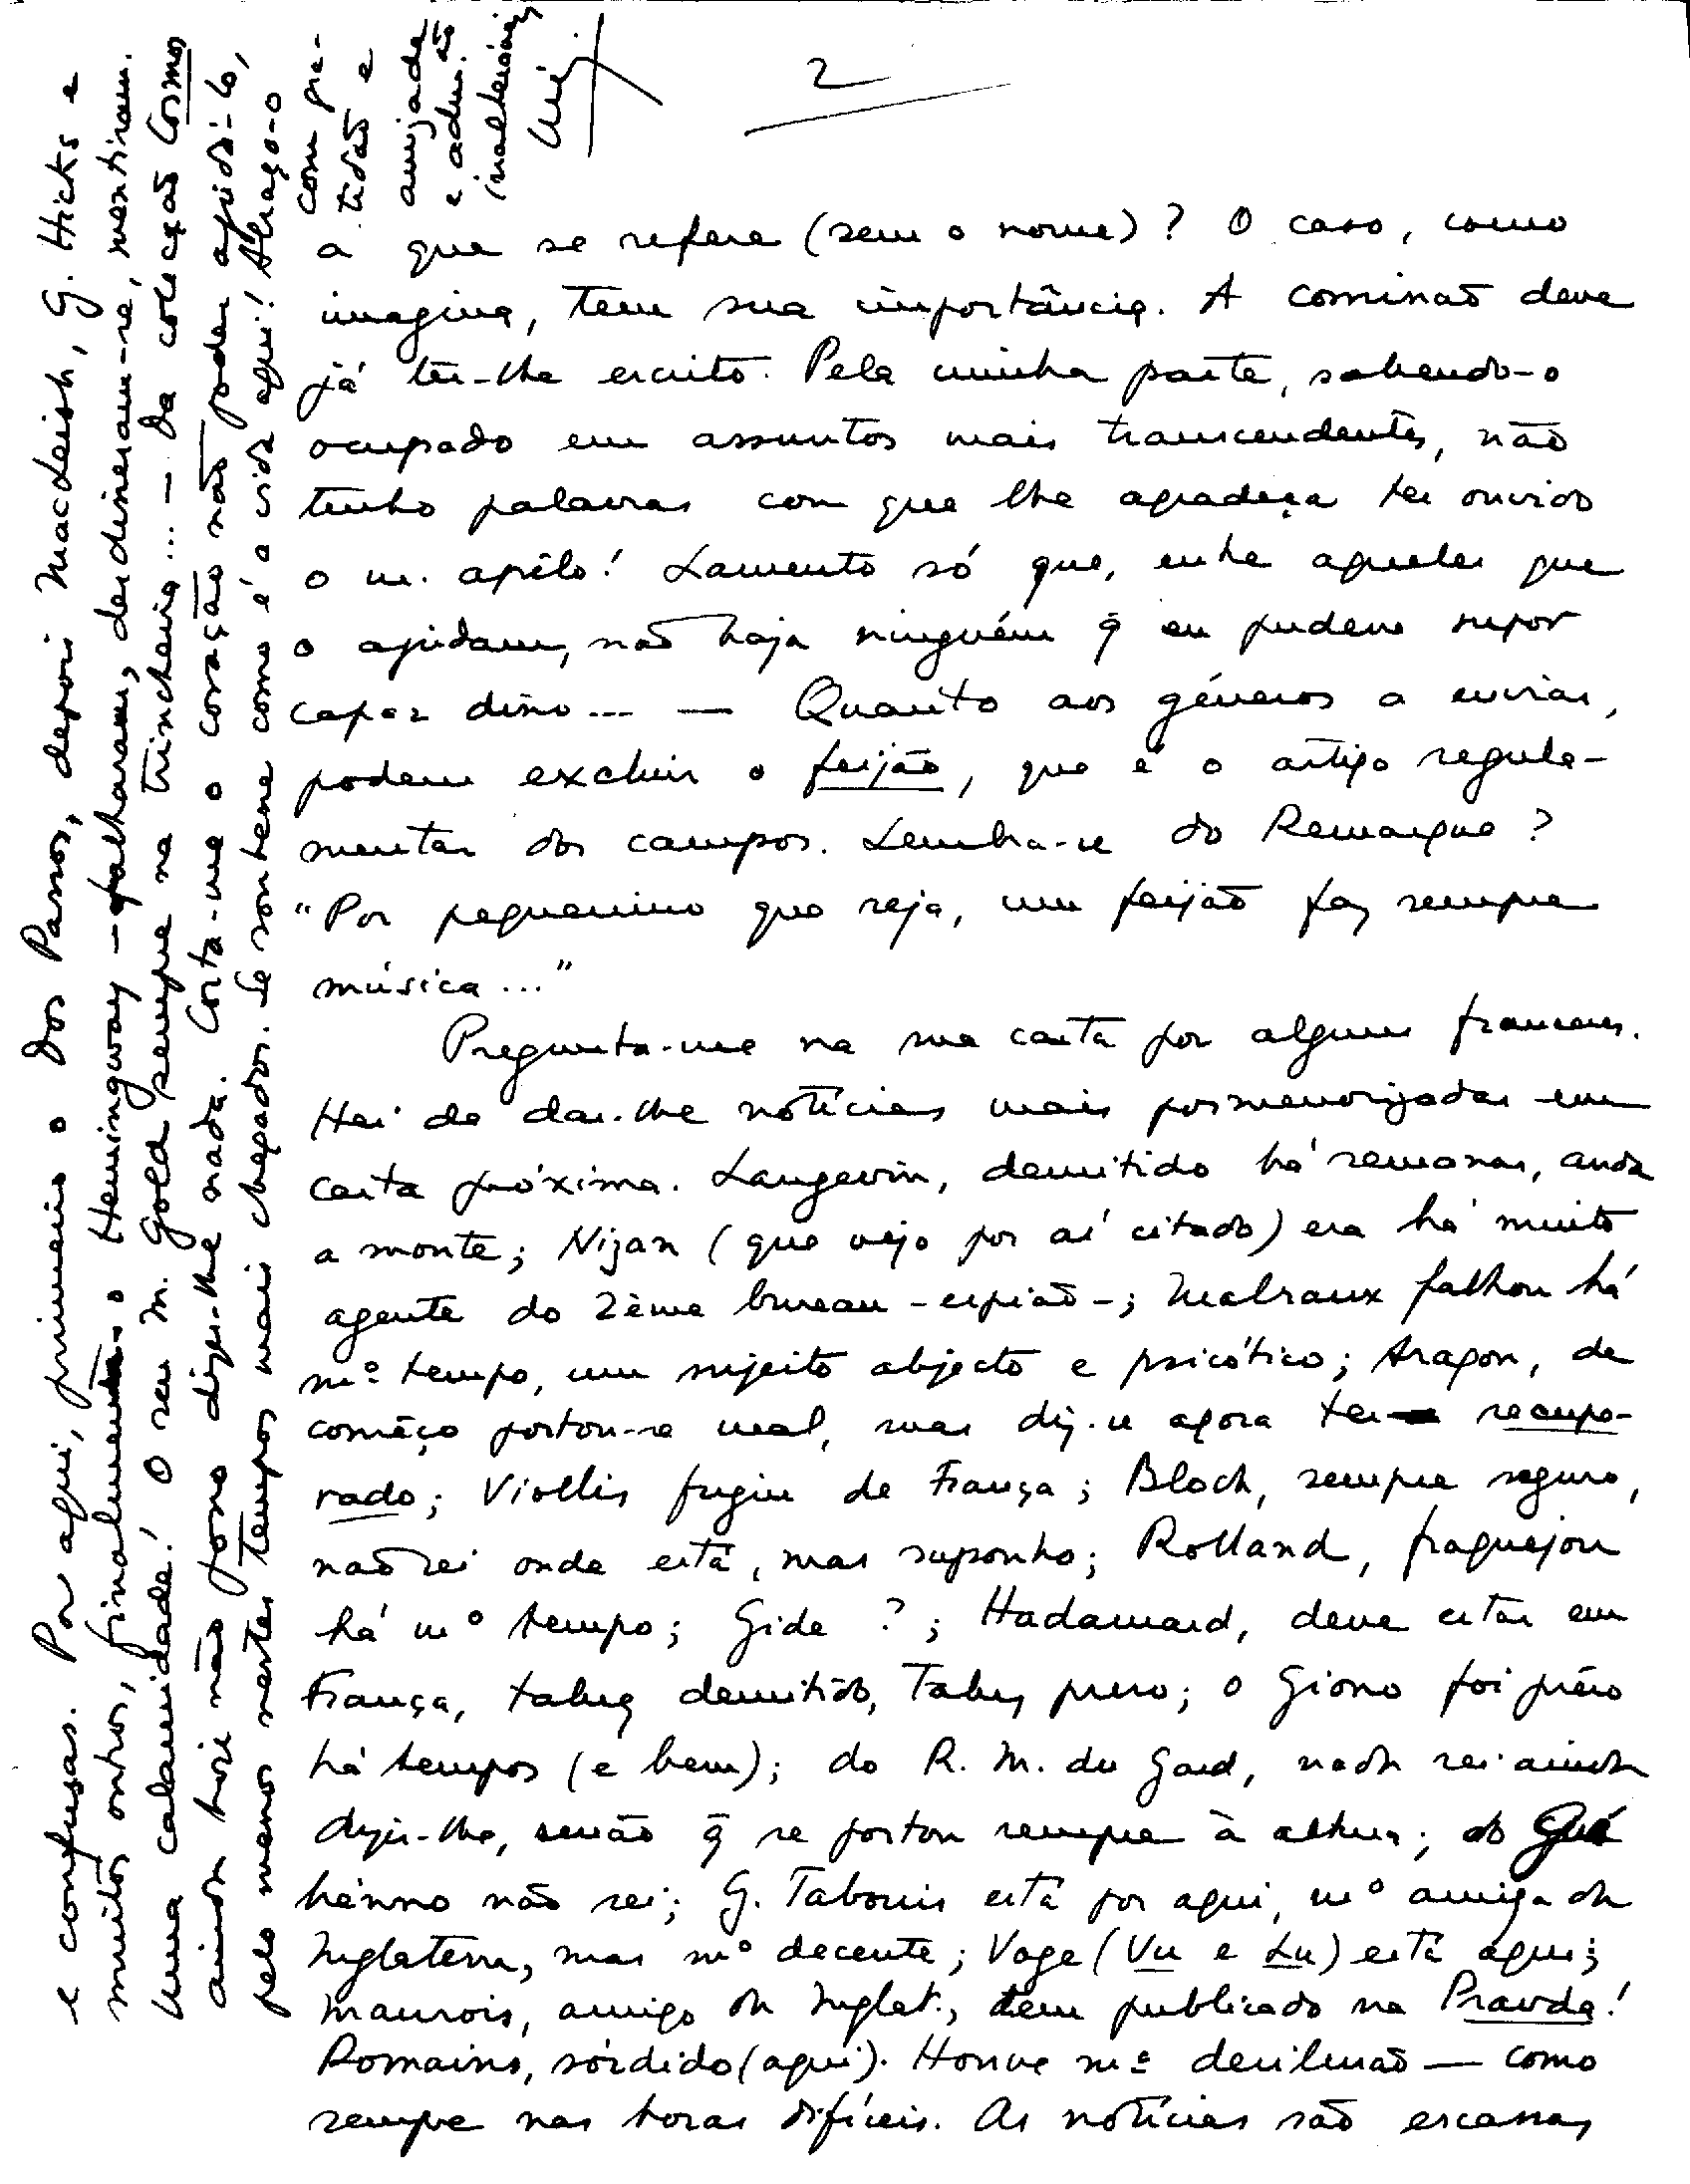 2
a que se refere (sem o nome)? O caso, como
imagina, tem sua importância. A comissão deve
já ter-lhe escrito. Pela minha parte, sabendo-o
ocupado em assuntos mais transcendentes, não
tenho palavras com que lhe agradeça ter ouvido
o m. apêlo! Lamento só que, entre aqueles que
o ajudam, não haja ninguém q̃ eu pudesse supor
capaz disso... — Quanto aos géneros a enviar,
podem excluir o feijão, que é o artigo regula-
mentar dos campos. Lembra-se do Remarque?
"Por pequenino que seja, um feijão faz sempre
música..."
Pregunta-me na sua carta por alguns franceses.
Hei de dar-lhe notícias mais pormenorizadas em
carta próxima. Langevin, demitido há semanas, anda
a monte; Nizan (que vejo por aí citado) era há muito
agente do 2ème bureau - espião -; Malraux falhou há
mº tempo, um sujeito abjecto e psicótico; Aragon, de
comêço portou-se mal, mas diz-se agora ter recupe-
rado; Viollis fugiu de França; Bloch, sempre seguro,
não sei onde está, mas suponho; Rolland, fraquejou
há mº tempo; Gide ?; Hadamard, deve estar em
França, talvez demitido, talvez preso; o Giono foi prêso
há tempos (e bem); do R. M. du Gard, nada sei ainda
dizer-lhe, senão q̃ se portou sempre à altura; do Gué
hénno não sei; G. Tabouis está por aqui, mº amiga da
Inglaterra, mas mº decente; Voge (Vu e Lu) está aqui;
Maurois, amigo da Inglat., tem publicado na Pravda!
Romains, sórdido (aqui). Houve mª desilusão — como
sempre nas horas difíceis. As notícias são escassas
e confusas. Por aqui, primeiro o Dos Passos, depois MacLeish, G. Hicks e
muitos outros, finalmente o Hemingway — falharam, desdisseram-se, mentiram.
Uma calamidade! O seu M. Gold sempre na trincheira... — Da colecção Cosmos
ainda hoje não posso dizer-lhe nada. Corta-me o coração não poder ajudá-lo,
pelo menos nestes tempos mais chegados. Se soubesse como é a vida aqui! Abraço-o
com gra-
tidão e
amizade
e adm.ão
inalteráveis